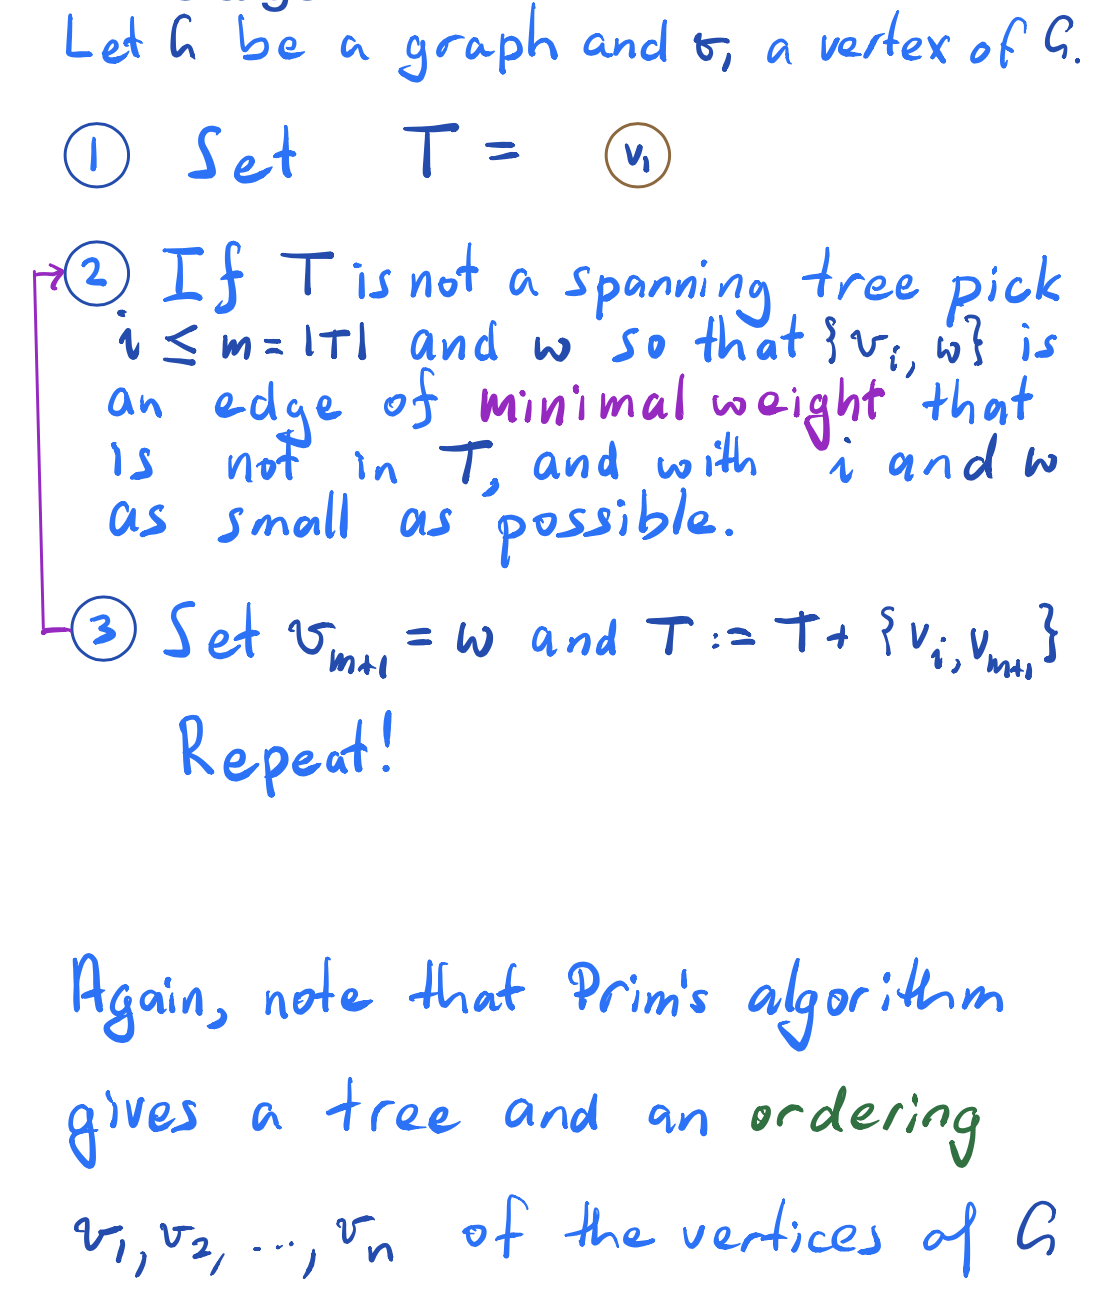 Let G be a graph and v₁ a vertex of G.
① Set T = v₁
② If T is not a spanning tree pick
i ≤ m = |T| and w so that {vᵢ, w} is
an edge of minimal weight that
is not in T, and with i and w
as small as possible.
③ Set vₘ₊₁ = w and T := T + {vᵢ, vₘ₊₁}
Repeat!
Again, note that Prim's algorithm
gives a tree and an ordering
v₁, v₂, ..., vₙ of the vertices of G